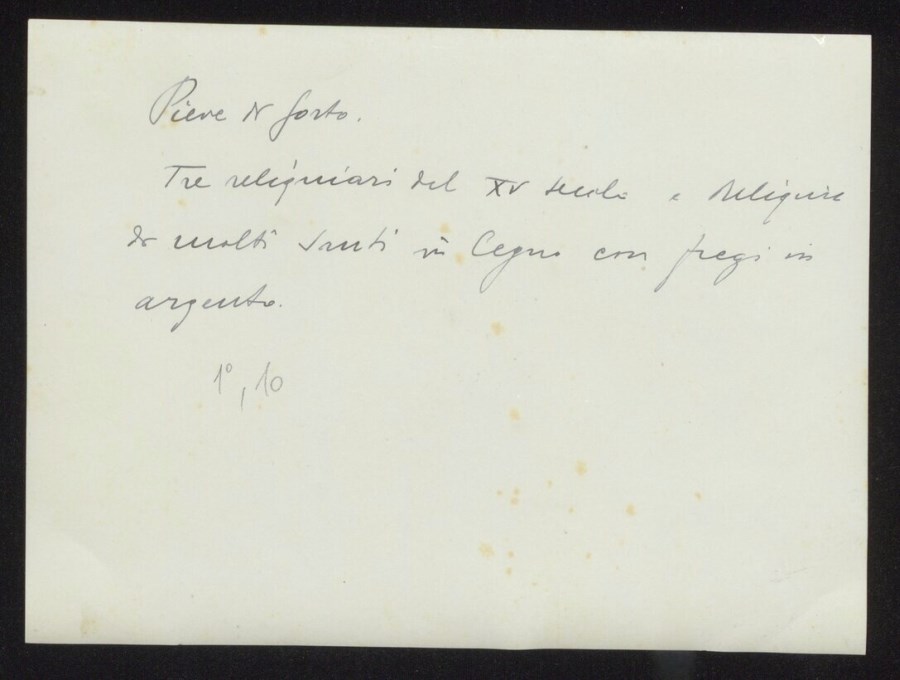 Pieve di Gorto.
Tre reliquiari del XV secolo e Reliquie
di molti Santi in Legno con fregi in
argento.
1º, 10